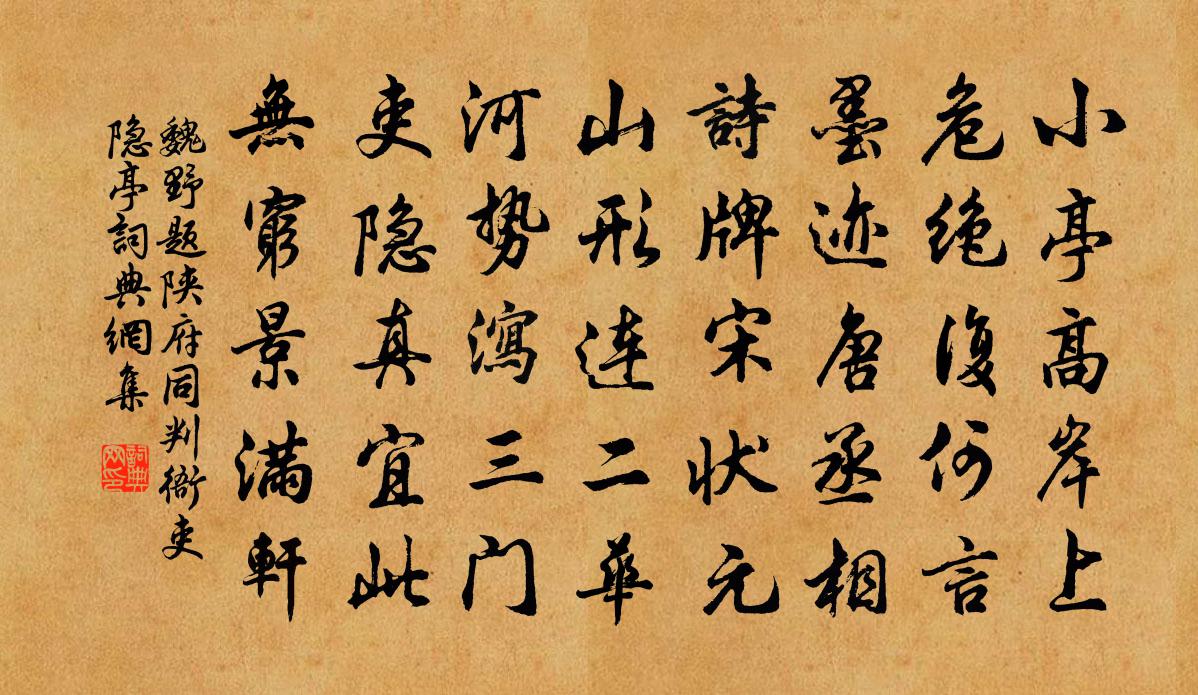 小亭高岸上
危绝復何言
墨迹唐丞相
詩牌宋状元
山形连二華
河势瀉三门
吏隐真宜此
無窮景满軒
魏野题陕府同判衙吏
隐亭詞典網集
詞典
网印